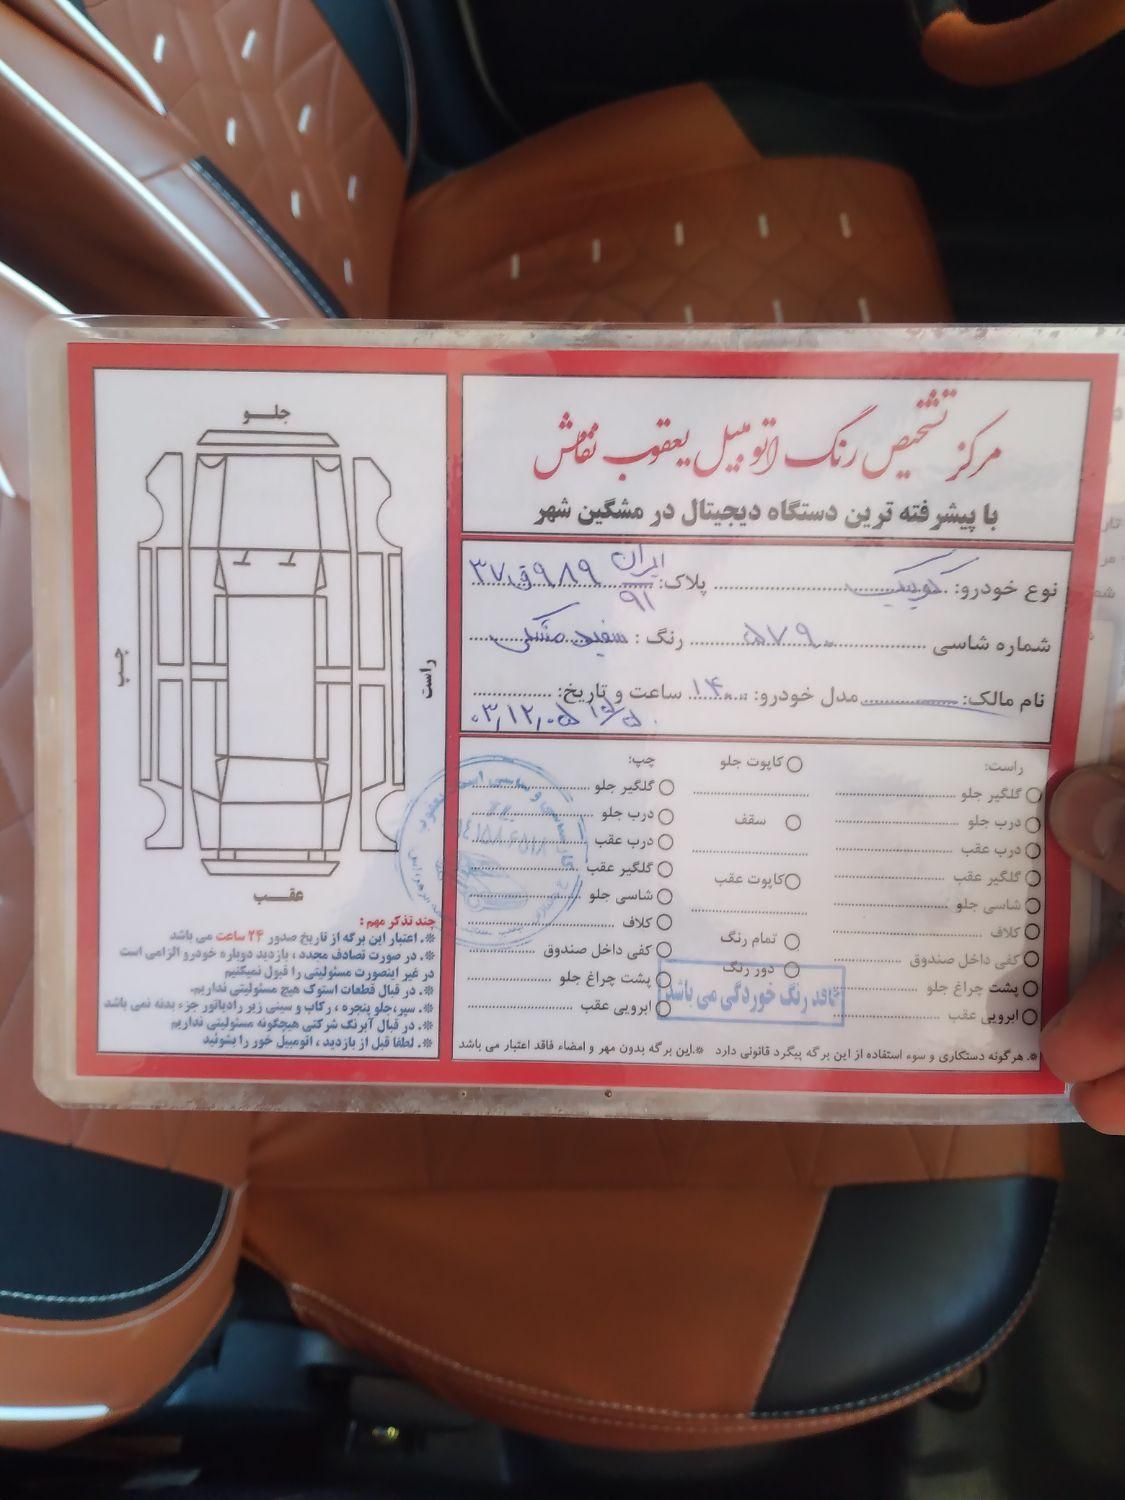 مرکز تشخیص رنگ اتومبیل یعقوب نقاش
با پیشرفته ترین دستگاه دیجیتال در مشگین شهر
نوع خودرو: کوییک پلاک: ۳۷ ق ۹۸۹ ایران ۹۱
شماره شاسی ۵۷۹۰ رنگ: سفید مشکی
نام مالک: مدل خودرو: ۱۴۰۰ ساعت و تاریخ:
۰۳,۱۲,۰۵
راست:
گلگیر جلو
درب جلو
درب عقب
گلگیر عقب
شاسی جلو
کلاف
کفی داخل صندوق
پشت چراغ جلو
ابرویی عقب
کاپوت جلو
سقف
کاپوت عقب
تمام رنگ
دور رنگ
فاقد رنگ خوردگی می باشد
چپ:
گلگیر جلو
درب جلو
درب عقب
گلگیر عقب
شاسی جلو
کلاف
کفی داخل صندوق
پشت چراغ جلو
ابرویی عقب
※. هرگونه دستکاری و سوء استفاده از این برگه پیگرد قانونی دارد ※.این برگه بدون مهر و امضاء فاقد اعتبار می باشد
جلـــو
چپ
راست
عقـــب
چند تذکر مهم :
※. اعتبار این برگه از تاریخ صدور ۲۴ ساعت می باشد
※. در صورت تصادف مجدد ، بازدید دوباره خودرو الزامی است
در غیر اینصورت مسئولیتی را قبول نمیکنیم
※. در قبال قطعات استوک هیچ مسئولیتی نداریم.
※. سپر،جلو پنجره ، رکاب و سینی زیر رادیاتور جزء بدنه نمی باشد
※. در قبال آبرنگ شرکتی هیچگونه مسئولیتی نداریم
※. لطفا قبل از بازدید ، اتومبیل خور را بشوئید